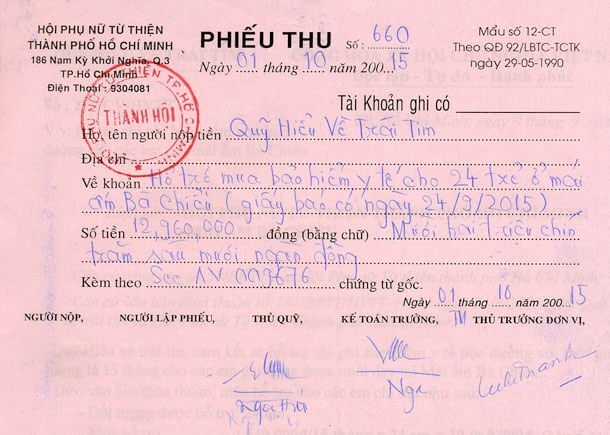 HỘI PHỤ NỮ TỪ THIỆN
THÀNH PHỐ HỒ CHÍ MINH
186 Nam Kỳ Khởi Nghĩa, Q.3
TP.Hồ Chí Minh
Điện Thoại : 9304081
PHIẾU THU
Số : 660
Ngày 01 tháng 10 năm 200.15
Mẩu số 12-CT
Theo QĐ 92/LBTC-TCTK
ngày 29-05-1990
Tài Khoản ghi có
THÀNH HỘI
Họ, tên người nộp tiền Quỹ Hiểu Về Trái Tim
Địa chỉ
Về khoản Hỗ trợ mua bảo hiểm y tế cho 24 trẻ ở mái
ấm Bà Chiểu (giấy báo có ngày 24/9/2015)
Số tiền 12,960,000 đồng (bằng chữ) Mười hai triệu chín
trăm sáu mươi ngàn đồng
Kèm theo Sec AV 009676 chứng từ gốc.
Ngày 01 tháng 10 năm 200.15
NGƯỜI NỘP, NGƯỜI LẬP PHIẾU, THỦ QUỸ, KẾ TOÁN TRƯỞNG, TM THỦ TRƯỞNG ĐƠN VỊ,
Nga